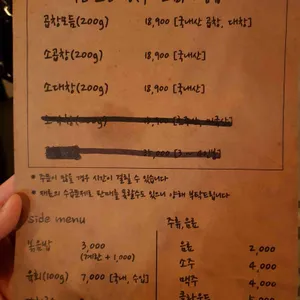 곱창모듬(200g) 18,900 [국내산 곱창, 대창]
소곱창(200g) 18,900 [국내산]
소대창(200g) 18,900 [국내산]
* 주문이 많을 경우 시간이 걸릴 수 있습니다
* 재료의 수급문제로 판매를 못할수도 있으니 양해 부탁드립니다
side menu
볶음밥 3,000
(계란 + 1,000)
육회(100g) 7,000 [국내, 수입]
주류,음료
음료 2,000
소주 4,000
맥주 4,000